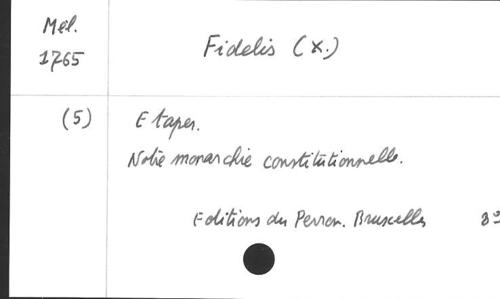 Mél.
1765
Fidelis (X.)
(5)
Etapes.
Notre monarchie constitutionnelle.
Editions du Perron. Bruxelles 8°